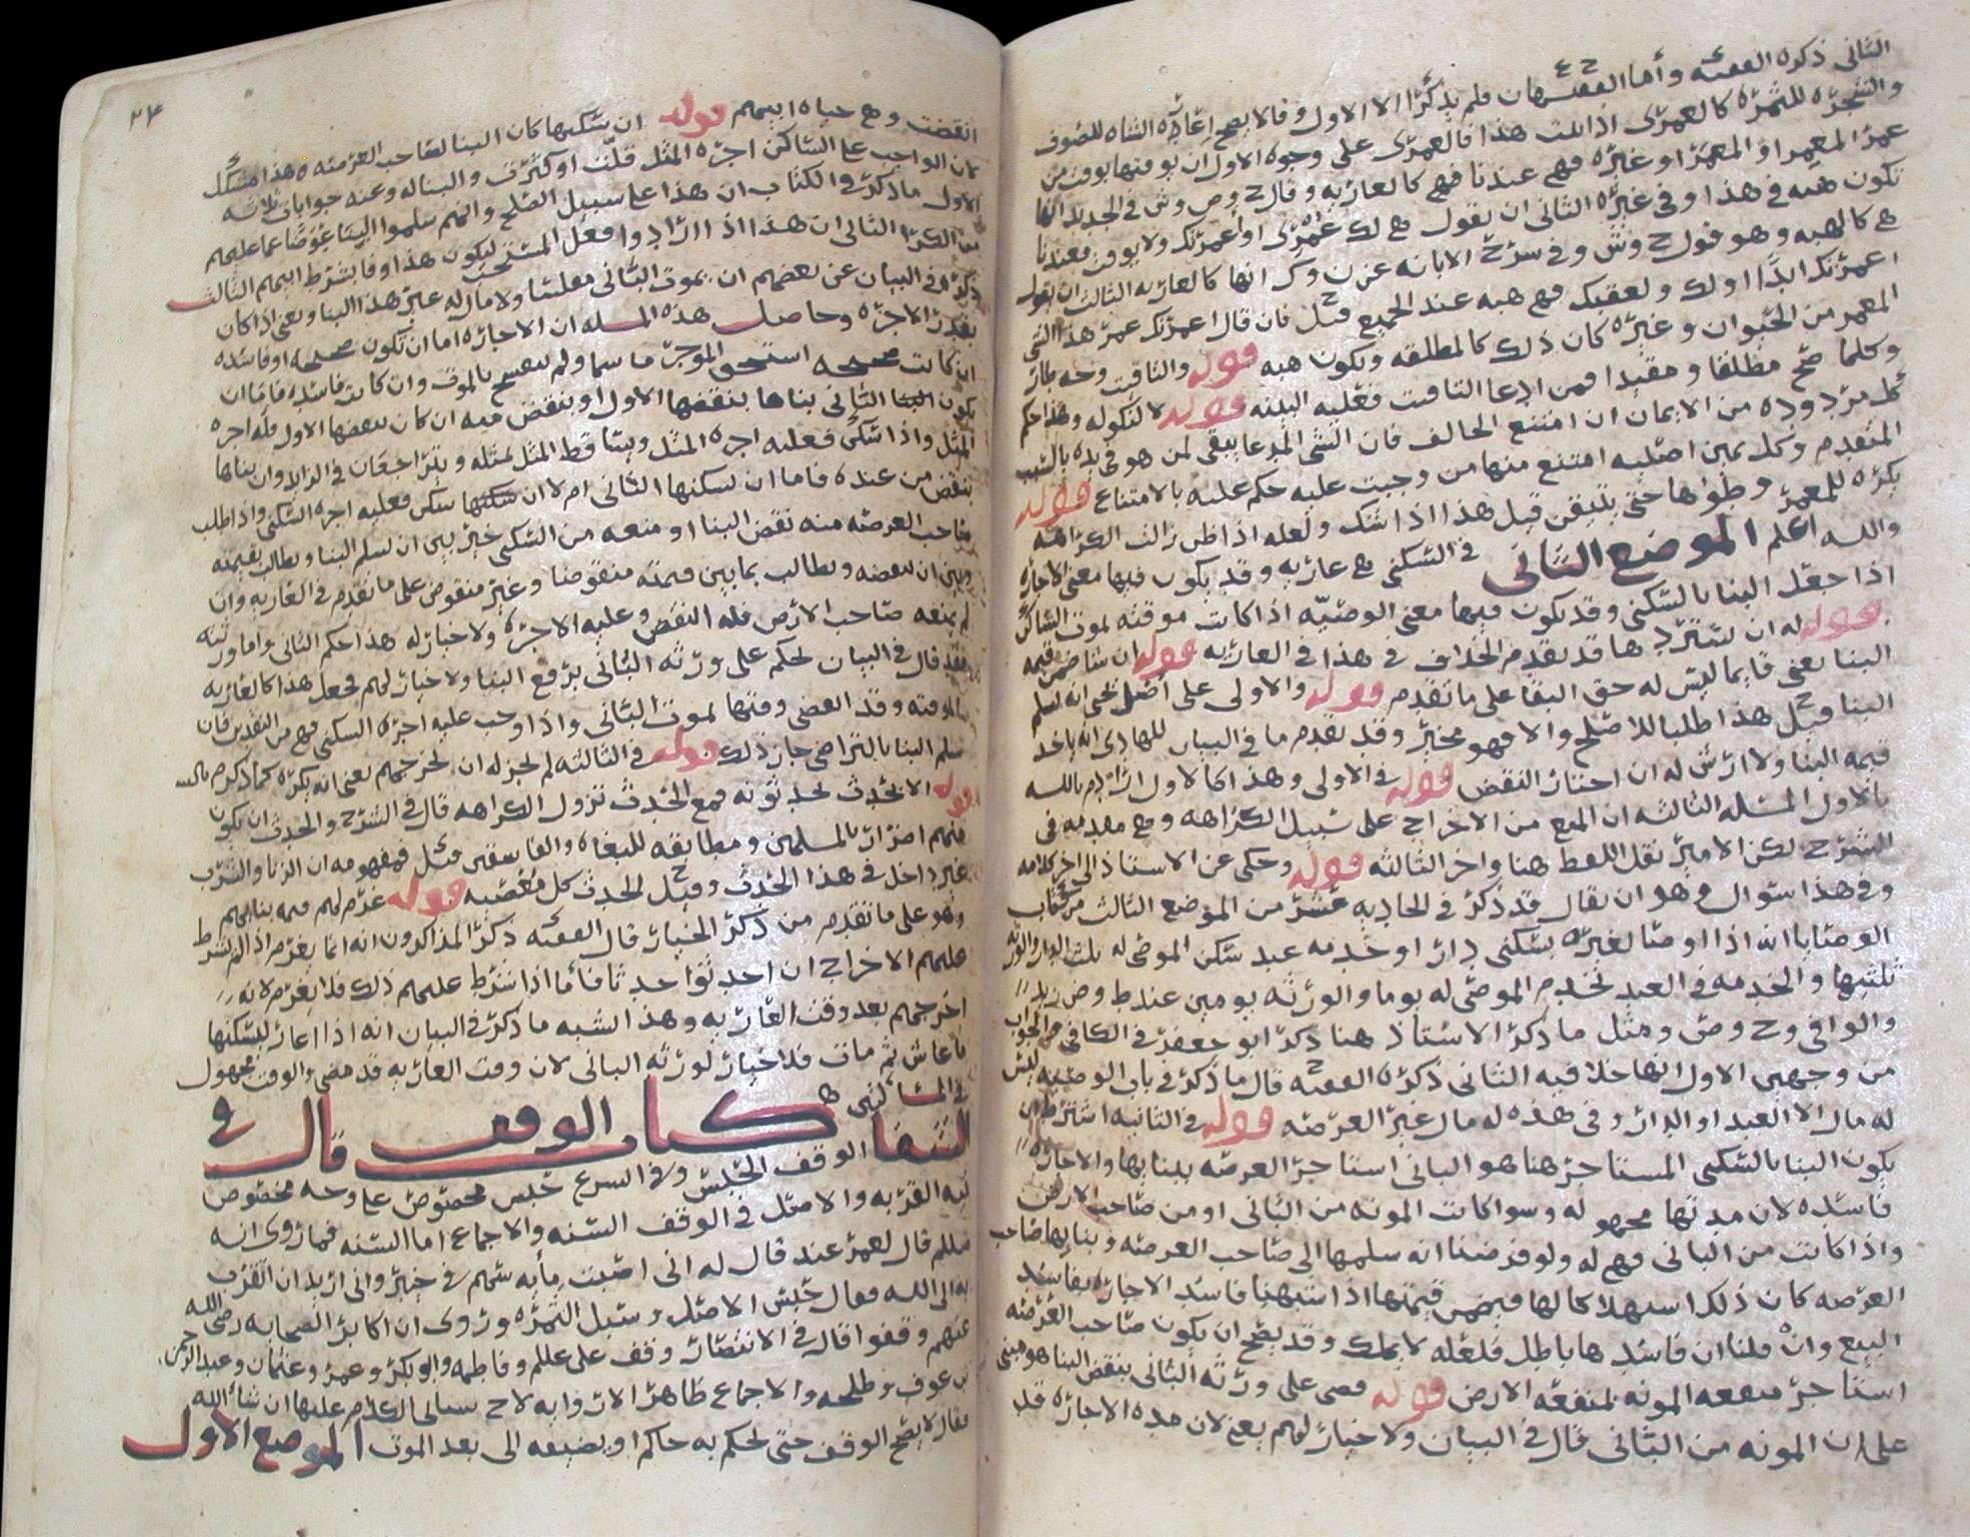 الثاني ذكره الفقيه وأما الفقيهان فلم يذكرا الا الاول وقالا يصح إعارة الشاه للصوف
والشجره للثمره كالعمرى اذا ثبت هذا فالعمرى على وجوه الاول ان يوقتها بوقت من
عمر المعمر او المعمر او غيره فهي عندنا كالعاريه وقال ح وص وش في الجديد انها
تكون هبه في هذا وفي غيره الثاني ان يقول هي لك عمرى او أعمرتك ولا يوقت فعندنا
هي كالهبه وهو قول ح وش وفي شرح الابانه عن ن وك انها كالعاريه الثالث ان يقول
اعمرتك ابدًا او لك ولعقبك فهي هبه عند الجميع قيل فان قال اعمرتك عمر هذا الشي
المعمر من الحيوان وغيره كان ذلك كالمطلقه ويكون هبه قوله والثاقب وجه
وكلما صح مطلقا ومقيدا فمن ادعا التاقيت فعليه البينه قوله لا لنكوله وهذا حكم
كل مردوده من الايمان ان امتنع الحالف فان الشي المدعا يبقى لمن هو في يده بالسبب
المتقدم وكل يمين اصليه امتنع منها من وجبت عليه حكم عليه بالامتناع قوله
يكره للمعمر وطؤها حتى يتيقن قيل هذا اذا شك ولعله اذا ظن زالت الكراهه
والله اعلم الموضع الثاني في السكنى هي عاريه وقد يكون فيها معنى الاجاره
اذا جعل البنا بالسكنى وقد يكون فيها معنى الوصيه اذا كانت موقته بموت الساكن
قوله له ان يسترد ها قد تقدم الخلاف في هذا في العاريه قوله ان شا ضمن قيمه
البنا يعني قايما ليس له حق البقا على ما تقدم قوله والاولى على أصل يحيى انه يسلم
البنا قيل هذا طلبا للاصلح والا فهو مخير وقد تقدم ما في البيان للهادي انه ياخذ
قيمه البنا ولا ارش له ان اختار النقض قوله في الاولى وهذا كالاول اراد م بالله
بالاول المسله الثالثه ان المنع من الاخراج على سبيل الكراهه وهي مقدمه في
الشرح لكن الامير نقل اللفظ هنا واخر الثالثه قوله وحكى عن الاستاذ الى اخر كلامه
وفي هذا سوال وهو ان يقال قد ذكر في الحاديه عشر من الموضع الثالث من كتاب
الوصايا انه اذا اوصا لغيره بسكنى دار او خدمه عبد سكن الموصى له ثلث الدار والورثه
ثلثيها والخدمه في العبد يخدم الموصى له يوما والورثه يومين عند ط وص زيد
والوافي وح وص ومثل ما ذكر الاستاذ هنا ذكر ابو جعفر في الكافي والجواب
من وجهين الاول انها خلافيه الثاني ذكره الفقيه قال ما ذكر في باب الوصيه ليس
له مال الا العبد او الدار وفي هذه له مال غير العرصه قوله في الثانيه اشترط ان
يكون البنا بالسكنى المستاجر هنا هو الباني استاجر العرصه ببنايها والاجاره
فاسده لان مدتها مجهو له وسوا كانت المونه من الباني او من صاحب الارض
واذا كانت من الباني فهي له ولو فرضنا انه سلمها الى صاحب العرصه وبنا بها صاحب
العرصه كان ذلك استهلاكا لها فيضمن قيمتها اذا اشبهنا فاسد الاجاره بفاسد
البيع وان قلنا ان فاسدها باطل فلعله لا يملك وقد يصح ان يكون صاحب العرصه
استاجر منفعه المونه بمنفعه الارض قوله قضى على ورثه الباني بنقض البنا هو مبني
على ان المونه من الباني قال في البيان ولا خيار لهم يعني لان مده الاجاره قد
٣٤
انقضت وهي حياه ابيهم قوله ان سكنها كان البنا لصاحب العرصه هذا مشكل
لان الواجب على الساكن اجره المثل قلت او كثرت والبنا له وعنه جوابات ثلاثه
الاول ما ذكر في الكتاب ان هذا على سبيل الصلح وانهم سلموا البنا عوضا عما عليهم
من الكرا الثاني ان هذا اذا ارادوا فعل المستحب ليكون هذا وفا بشرط ابيهم الثالث
ذكره في البيان عن بعضهم ان يموت الباني مفلسا ولا مال له غير هذا البنا ويعني اذا كان
بقدر الاجره وحاصل هذه المسله ان الاجاره اما ان تكون صحيحه او فاسده
ان كانت صحيحه استحق الموجر ما سما ولم تنفسخ بالموت وان كانت فاسده فاما ان
يكون البنا الثاني بناها بنقضها الاول او بنقض فيه ان كان بنقضها الاول فله اجره
المثل واذا سكن فعليه اجره المثل ويتساقط المثل بمثله ويتراجعان في الزايد وان بناها
بنقض من عنده فاما ان يسكنها الثاني ام لا ان سكنها سكن فعليه اجره السكنى واذا طلب
صاحب العرصه منه نقض البنا او منعه من السكنى خير بين ان يسلم البنا ويطالب بقيمته
وبين ان ينقضه ويطالب بما بين قيمته منقوضا وغير منقوض على ما تقدم في العاريه وان
لم يمنعه صاحب الارض فله النقض وعليه الاجره ولا خيار له هذا حكم الثاني واما ورثته
فقد قال في البيان يحكم على ورثه الباني برفع البنا ولا خيار لهم فجعل هذا كالعاريه
الموقته وقد انقضى وقتها بموت الباني واذا وجب عليه اجره السكنى فهي من النقدين فان
سلم البنا بالتراضي جاز ذلك قوله في الثالثه لم يجز له ان يخرجهم يعني انه يكره كما ذكر م بالله
قوله الا لحدث يحدثونه فمع الحدث تزول الكراهه قال في الشرح والحدث ان يكون
منهم اضرار بالمسلمين ومطابقه للبغاه والفاسقين قيل فمفهومه ان الزنا والشرب
غير داخل في هذا الحدث وقيل الحدث كل معصيه قوله غرم لهم قيمه بنائهم
وهو على ما تقدم من ذكر الخيار قال الفقيه ذكر المذاكرون انه انما يغرم اذا لم يشرط
عليهم الاخراج ان احدثوا حدثا فأما اذا شرط عليهم ذلك فلا يغرم لانه
اخرجهم بعد وقت العاريه وهذا اشبه ما ذكر في البيان انه اذا اعار ليسكنها
ما عاش ثم مات فلا خيار لورثه الباني لان وقت العاريه قد مضى والوقت مجهول
في المسالتين
كتاب الوقف قال في
الشفا الوقف الحبس وفي الشرع حبس مخصوص على وجه مخصوص
بنيه القربه والاصل في الوقف السنه والاجماع اما السنه فما روى انه
صللم قال لعمر عند قال له اني اصبت مأيه سهم في خيبر واني اريد ان اتقرب
به الى الله فقال حبس الاصل وسبل الثمره وروى ان اكابر الصحابه رضي الله
عنهم وقفوا قال في الانتصار وقف علي عللم وفاطمه وابو بكر وعمر وعثمان وعبد الرحمن
بن عوف وطلحه والاجماع ظاهر الا روايه لاح سياتي الكلام عليها ان شا الله
فقال لا يصح الوقف حتى يحكم به حاكم او يضيفه الى بعد الموت الموضع الاول